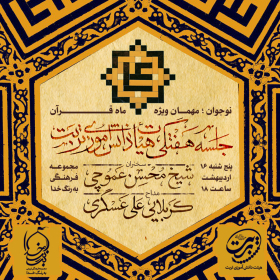 نوجوان ؛ مهمان ویژه ماه قرآن
جلسه هفتگی هیات دانش آموزی تربت
سخنران
شیخ محسن عموچی
مداح
کربلایی علی عسکری
پنج شنبه ۱۶
اردیبهشت
ساعت ۱۸
مجموعه
فرهنگی
به رنگ خدا
تربت
هیات دانش آموزی تربت
به رنگ خدا